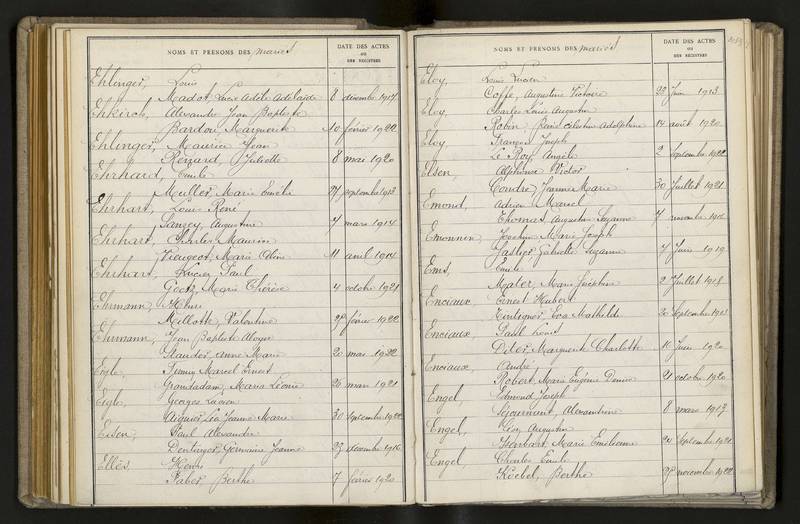 NOMS ET PRÉNOMS DES mariés
DATE DES ACTES
OU
DES REGISTRES
Ehlinger, Louis
Madot, Laure Adèle Adélaïde 8 décembre 1917
Ehkirch, Alexandre Jean Baptiste
Bardou, Marguerite 10 février 1922
Ehlinger, Maurice Jean
Renard, Juliette 8 mai 1920
Ehrhard, Emile
Muller, Marie Emélie septembre 1913
Ehrhart, Louis René
Augustine 7 mars 1914
Ehrhart, Charles Maurice
Vieugeot, Marie 11 avril 1914
Ehrhart, Lucien Paul
Goetz, Marie Thérèse 4 octobre 1921
Ehrmann, Henri
Millotte, Valentine février 1922
Ehrmann, Jean Baptiste Aloyse
Stauder, Anne Marie 20 mai 1922
Eigle, Marcel Ernest
Grandadam, Maria Léonie 26 mars 1921
Eigle, Georges Lucien
Léa Jeanne Marie 30 septembre 1922
Eisen, Paul Alexandre
Germaine Jeanne 27 décembre 1916
Ellès, Henri
Faber, Berthe 7 février 1920
NOMS ET PRÉNOMS DES mariés
DATE DES ACTES
OU
DES REGISTRES
Eloy, Louis Lucien
Coffe, Augustine Victoire juin 1913
Eloy, Charles Louis Augustin
Robin, Célestine Adolphine 14 août 1920
Eloy, François Joseph
Le Roy, Angèle 2 septembre 1922
Elsen, Alphonse Victor
Gondré, Jeanne Marie 30 juillet 1921
Emond, Adrien Marcel
Thomas, Augustine Suzanne 7 novembre
Emonnin, Joachim Marie Joseph
Gabrielle Suzanne 7 juin 1919
Ems, Emile
Mater, Marie Joséphine 2 juillet 1918
Enciaux, Ernest Hubert
Eva Mathilde 20 septembre
Enciaux, Paul Louis
Marguerite Charlotte juin 1920
Enciaux, André
Robert, Marie Eugénie Denise 21 octobre 1920
Engel, Edmond Joseph
Séjournant, Alexandrine 8 mars 1917
Engel, Augustin
Herbert, Marie Emilienne septembre
Engel, Charles Emile
Koebel, Berthe novembre 1922